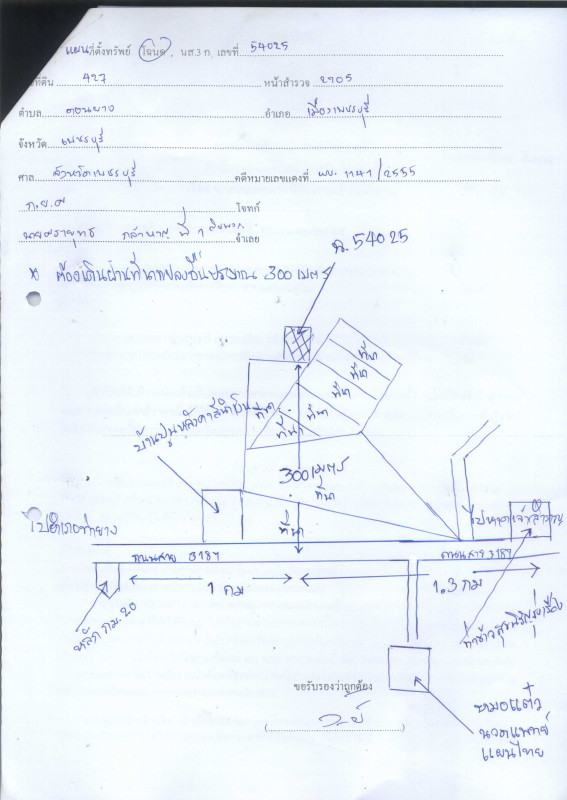 แผนที่ตั้งทรัพย์ โฉนด, นส.3 ก, เลขที่ 54025
ที่ดิน 427 หน้าสำรวจ 2905
ตำบล ดอนยาง อำเภอ เมืองเพชรบุรี
จังหวัด เพชรบุรี
ศาล จังหวัดเพชรบุรี คดีหมายเลขแดงที่ ผบ. 1141/2555
ก.ย.ศ โจทก์
กล้าหาญ ที่ 1 จำเลย
ฉ. 54025
* ต้องเดินผ่านที่นาแปลงอื่นประมาณ 300 เมตร
ที่นา
ที่นา
ที่นา
ที่นา
ที่นา
ที่นา
บ้านปูนหลังคาสีน้ำเงิน
300 เมตร
ที่นา
ที่นา
ไปอำเภอท่ายาง
ไปหาดเจ้าสำราญ
ถนนสาย 3187
ถนนสาย 3187
1 กม
1.3 กม
หลัก กม. 20
ท่าข้าวสุขพิรุฬรุ่งเรือง
ขอรับรองว่าถูกต้อง
หมอแต๋ว
นวดแพทย์
แผนไทย